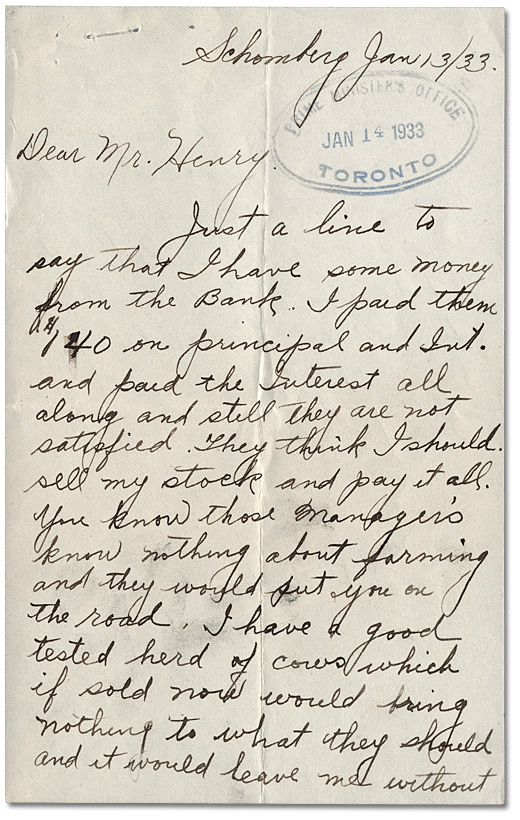 Schomberg Jan 13/33.
PRIME MINISTER'S OFFICE
JAN 14 1933
TORONTO
Dear Mr. Henry.
Just a line to
say that I have some money
from the Bank. I paid them
$140 on principal and Int.
and paid the Interest all
along and still they are not
satisfied. They think I should
sell my stock and pay it all.
You know those Manager's
know nothing about farming
and they would put you on
the road. I have a good
tested herd of cows which
if sold now would bring
nothing to what they should
and it would leave me without